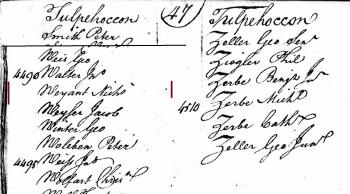 Tulpehoccon
Smith Peter
Weis Geo
4490 Walter Jno
Weyant Nichs
Weyler Jacob
Winter Geo
Woleben Peter
4495 Weis Jno
Wolfart Chris
47
Tulpehoccon
Zeller Geo Senr
Ziegler Phil
Zerbe Benja Jr
4510 Zerbe Michl
Zerbe Cathn
Zeller Geo Junr